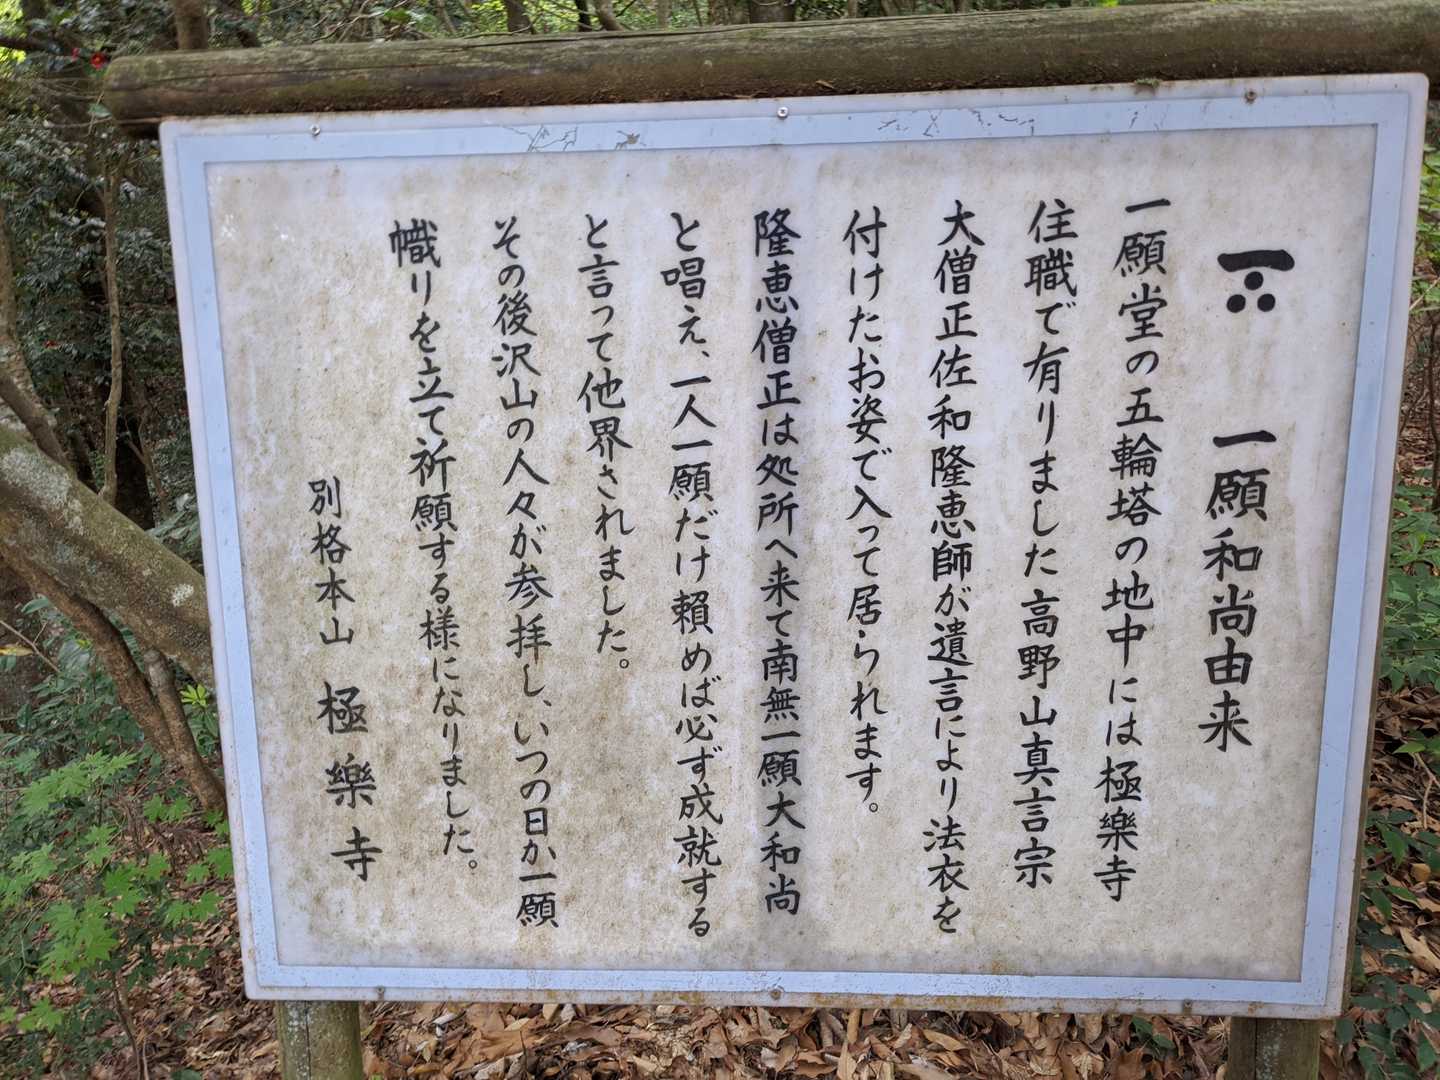 一願和尚由来
一願堂の五輪塔の地中には極樂寺
住職で有りました高野山真言宗
大僧正佐和隆恵師が遺言により法衣を
付けたお姿で入って居られます。
隆恵僧正は処所へ来て南無一願大和尚
と唱え、一人一願だけ頼めば必ず成就する
と言って他界されました。
その後沢山の人々が参拝し、いつの日か一願
幟りを立て祈願する様になりました。
別格本山 極樂寺